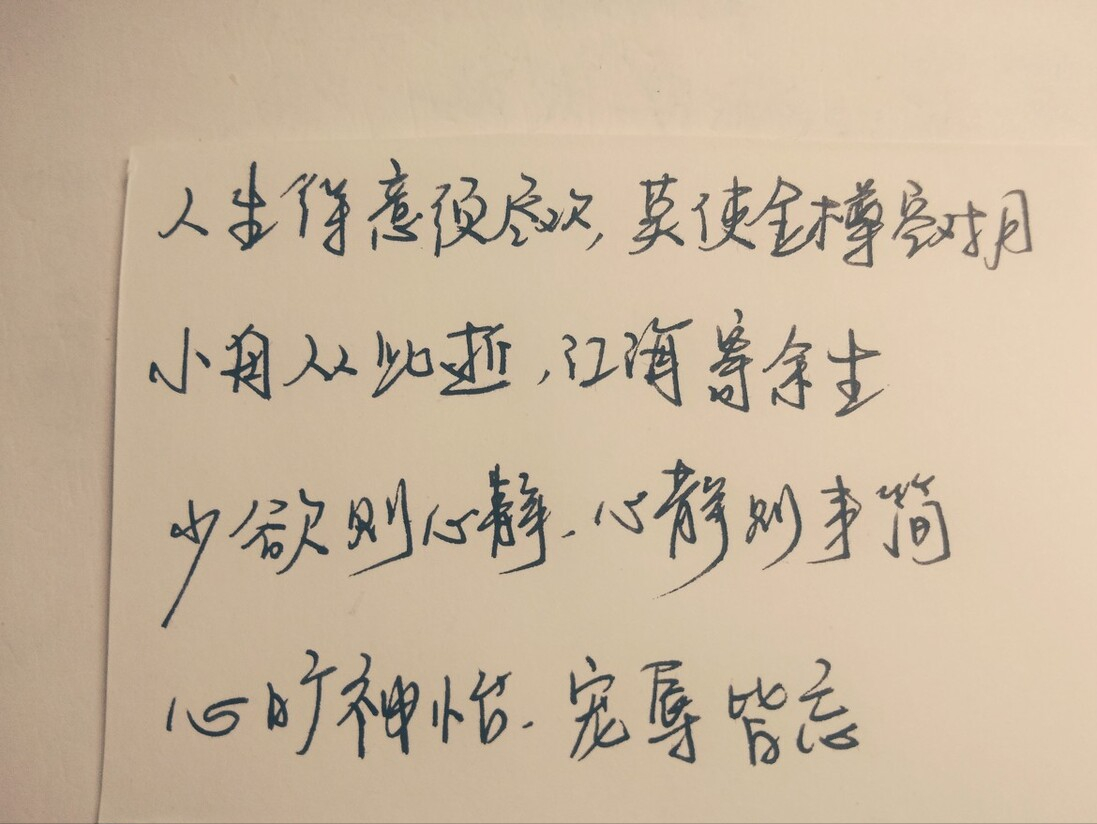 人生得意须尽欢,莫使金樽空对月
小舟从此逝,江海寄余生
少欲则心静.心静则事简
心旷神怡.宠辱皆忘